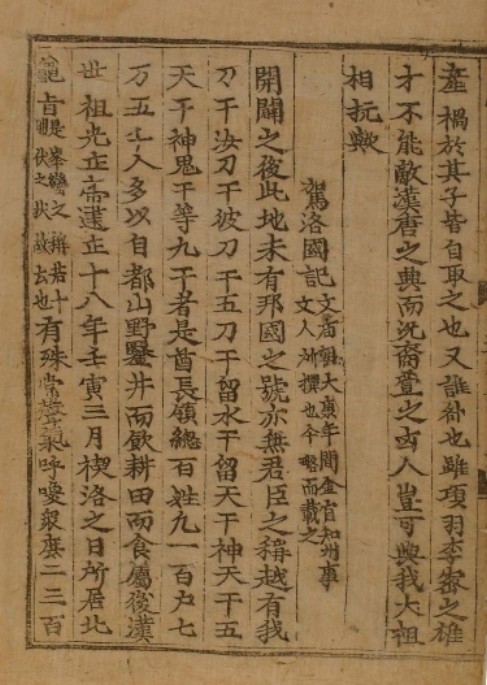 產禍於其子皆自取之也又誰咎也雖項羽李密之雄
才不能敵漢唐之興而况裔萱之凶人豈可與我大祖
相抗歟
駕洛國記文庙朝大康年間金官知州事文人所撰也今略而載之
開闢之後此地未有邦國之號亦無君臣之稱越有我
刀干汝刀干彼刀干五刀干留水干留天干神天干五
天干神鬼干等九干者是酋長領總百姓九一百户七
万五千人多以自都山野鑿井而飲耕田而食屬後漢
世祖光正帝建正十八年壬寅三月禊洛之日所居北
龜旨是峯巒之稱若十朋伏之狀故云也有殊常聲氣呼喚衆庶二三百